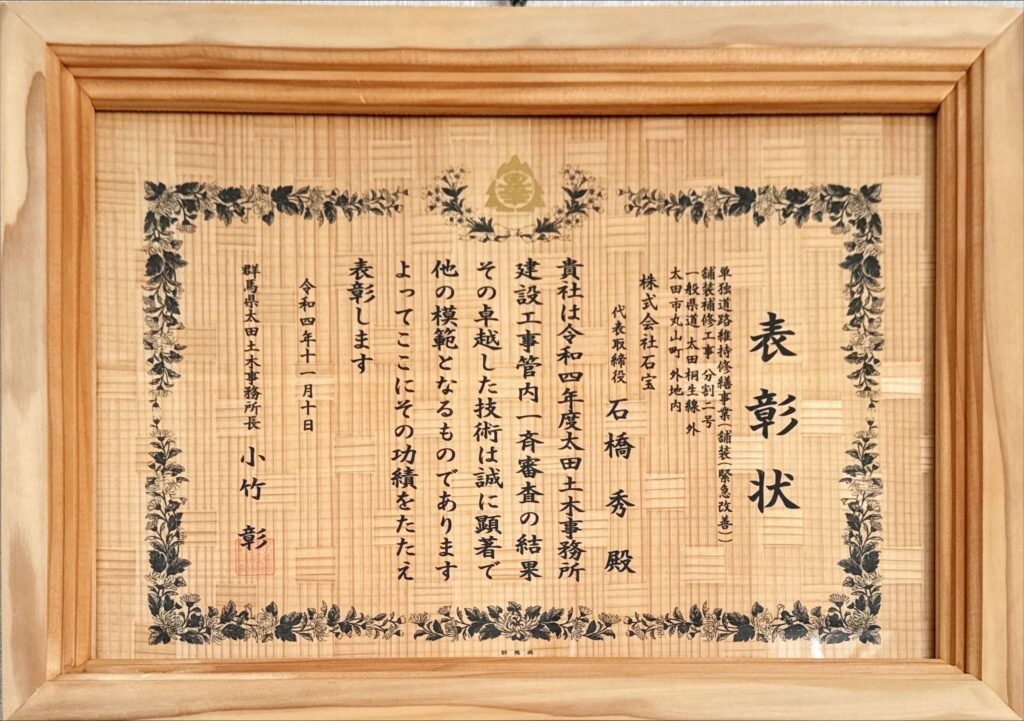 表彰状
単独道路維持修繕事業(舗装(緊急改善))
舗装補修工事 分割二号
一般県道 太田桐生線 外
太田市丸山町 外地内
株式会社石宝
代表取締役 石橋 秀 殿
貴社は令和四年度太田土木事務所
建設工事管内一斉審査の結果
その卓越した技術は誠に顕著で
他の模範となるものであります
よってここにその功績をたたえ
表彰します
令和四年十一月十日
群馬県太田土木事務所長 小竹 彰
群馬県